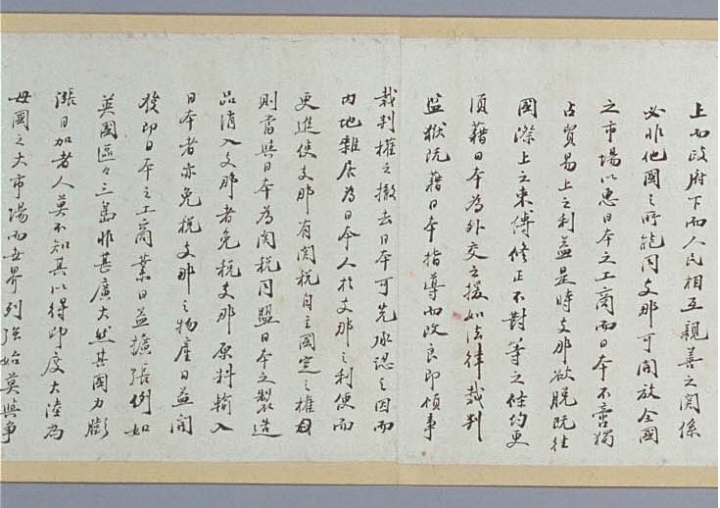 上而政府下而人民相互親善之関係
必非他國之所能同支那可開放全國
之市場以惠日本之工商而日本不啻獨
占貿易上之利益是時支那欲脫既往
國際上之束縛修正不對等之條約更
須藉日本為外交之援如法律裁判
監獄既藉日本指導而改良即領事
裁判權之撤去日本可先承認之因而
内地雜居為日本人於支那之利便而
更進使支那有関税自主國定之權
則當與日本為関税同盟日本之製造
品消入支那者免税支那原料輸入
日本者亦免税支那之物產日益開
發即日本之工商業日益擴張例如
英國區々三島非甚廣大然其國力膨
漲日加者人莫不知其以得印度大陸為
母國之大市場而世界列強始莫與爭